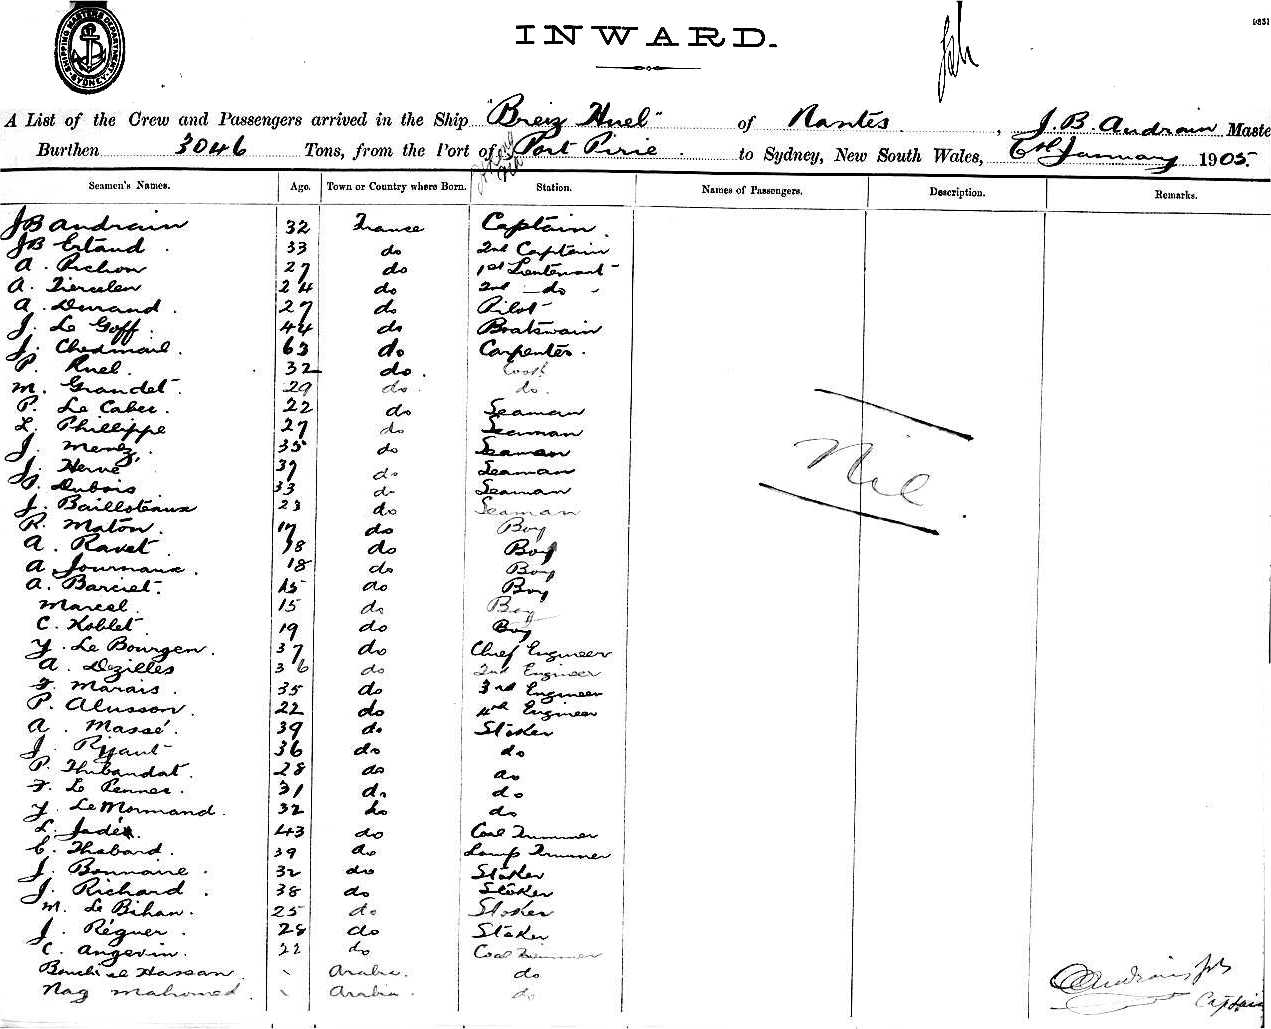 SHIPPING MASTERS DEPARTMENT SYDNEY
INWARD.
A List of the Crew and Passengers arrived in the Ship "Breiz Huel" of Nantes, J. B. Andrain Maste
Burthen 3046 Tons, from the Port of Port Pirie to Sydney, New South Wales, 6th January 1905.
Seamen's Names. Age. Town or Country where Born. Station. Names of Passengers. Description. Remarks.
JB Andrain 32 France Captain.
JB Ertaud 33 do 2nd Captain
A. Pichon 27 do 1st Lieutenant
A. Tiercelen 24 do 2nd do
A. Durand 27 do Pilot
J. Le Goff 44 do Boatswain
J. Chedmail. 63 do Carpenter.
P. Ruel. 32 do. Cook
M. Grandet 29 do do.
P. Le Caber. 22 do Seaman
L. Phillippe 27 do Seaman
J. Menez 35 do Seaman
J. Hervé 37 do Seaman
P. Dubois 33 do Seaman
J. Bailloteaux 23 do Seaman
Nil.
R. Maton. 17 do Boy
A. Ravet. 18 do Boy
A. Journaux. 18 do Boy
A. Barciet. 15 do Boy
Marcel. 15 do Boy
C. Koblet 19 do Boy
Y. Le Bourgen. 37 do Chief Engineer
A. Dezilles 36 do 2nd Engineer
F. Marais. 35 do 3rd Engineer
P. Alusson. 22 do 4th Engineer
A. Massé. 39 do Stoker
J. 36 do do
P. Thibaudat. 28 do do
F. Le Pennec. 31 do do
Y. Le Mormand. 32 do do
L. Jadé. 43 do Coal Trimmer
C. Thebard. 39 do Lamp Trimmer
J. Bonnaire. 32 do Stoker
J. Richard. 38 do Stoker
M. Le Bihan. 25 do Stoker
J. Réguer. 28 do Stoker
C. Angevin. 22 do Coal Trimmer
Hassan Arabia. do
Nag Mahomed. Arabia. do
Andrain JB
Captain